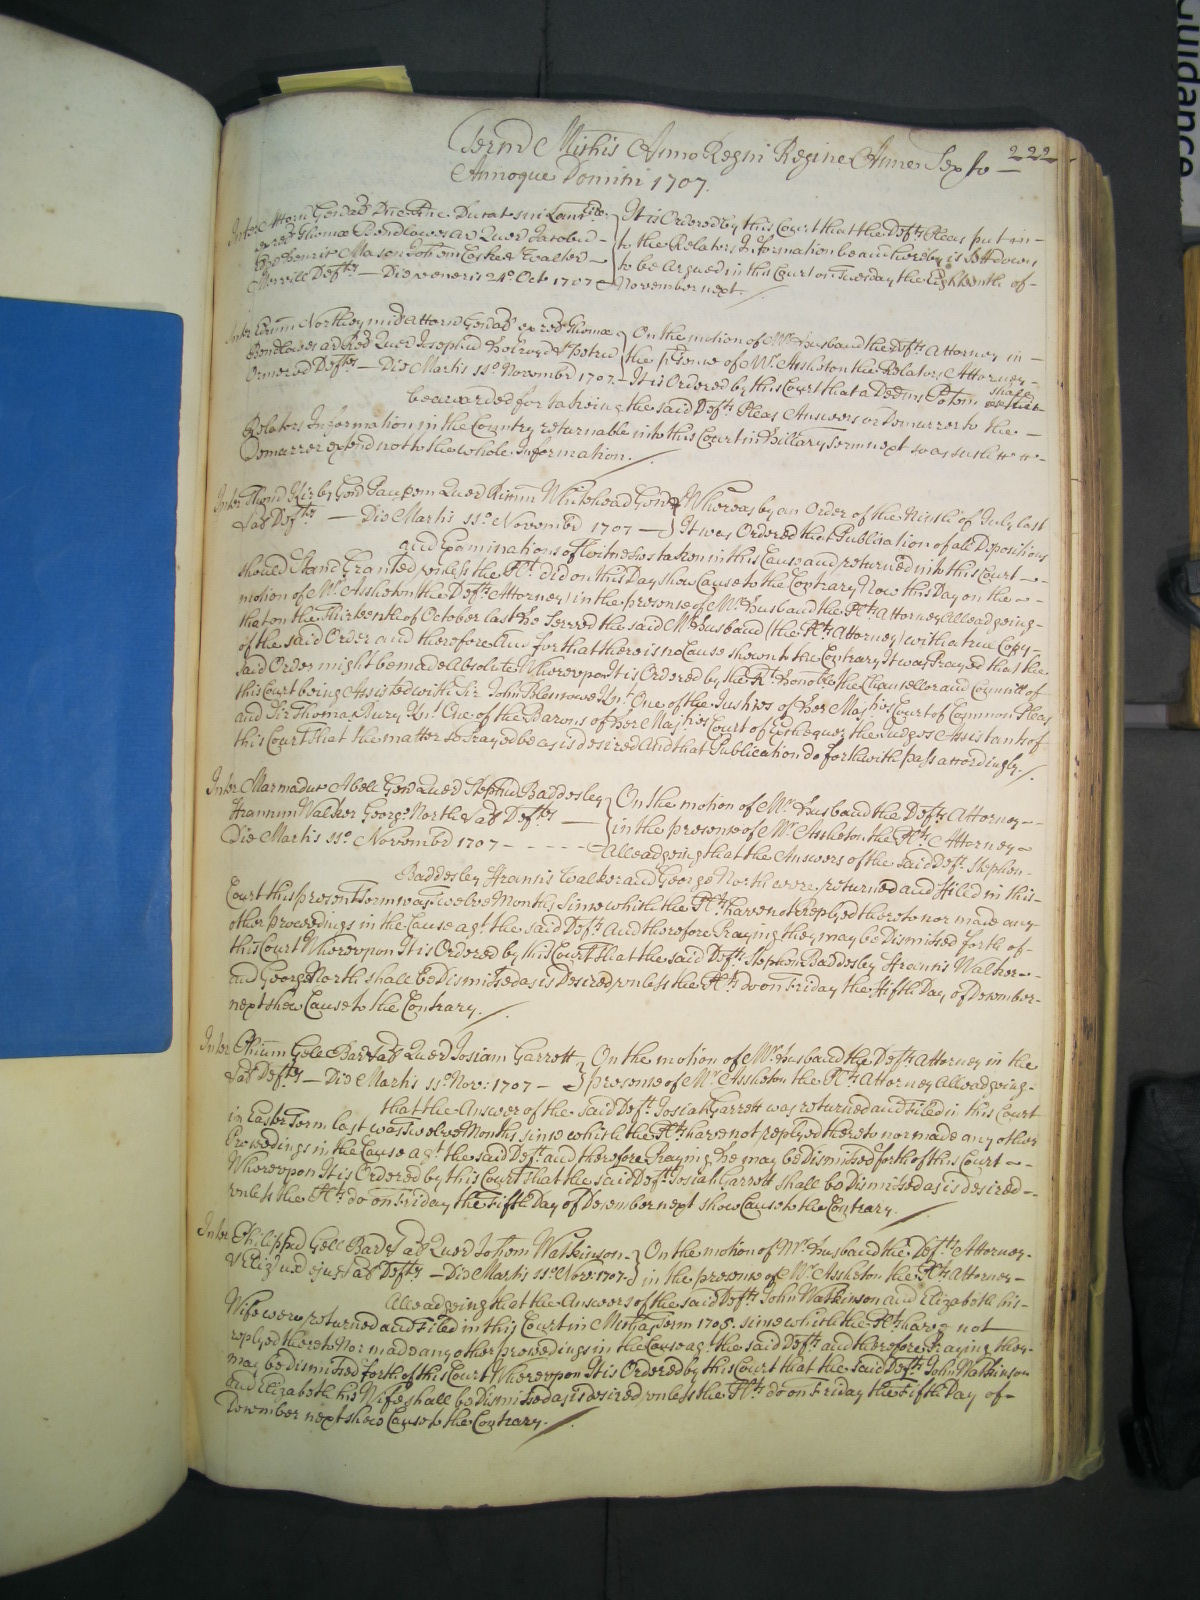 Term̃ Michis Anno Regni Regine Anne Sexto — 222
Annoque Domini 1707.
Inter Attorn̄ Genal̄ Dñe Rñe Ducat sui Lanc̄
ex rel̄ Thomæ Bendlowes Ar Quer Jacobū –
Henric̄ Mason Johem Walker –
Merrill Defts — Die veneris 24o Oct 1707
It is Ordered by this Court that the Defts Pleas put in –
to the Relators Information be and hereby is Sett down
to be Argued in this Court on Tuesday the Eighteenth of –
November next.
Inter Northey mil Attorn̄ Genal̄ ex rel̄ Thomæ
Bendlowes Quer Josephū Holroyd & Petrū
Ormered Defts — Die Martis 11o Novembr̄ 1707. –
On the motion of Mr. Husband the Defts Attorney in –
the p̄sence of Mr. Assheton the Relators Attorney –
It is Ordered by this Court that a Dedmus Potem shall
be awarded for takeing the said Defts Pleas Answers or Demurrer to the –
Relators Information in the Country returnable into this Court in Hillary Term next so as such
Demurrer extend not to the whole Information.
Inter Kirby Quer Whitehead Gen̄
& al̄ Defts — Die Martis 11o Novembr̄ 1707 —
Whereas by an Order of the Ninth of July last
It was Ordered that Publication of all Depositions
and Examinations of Witnesses taken in this Cause and returned into this Court –
should Stand Granted unless the Plt did on this Day show Cause to the Contrary Now this Day on the –
motion of Mr. Assheton the Defts Attorney in the presence of Mr. Husband the Plts Attorney Alleadgeing –
that on the Thirteenth of October last he Served the said Mr. Husband (the Plts Attorney) with a true Copy –
of the said Order and therefore And for that there is no Cause shewn to the Contrary It was Prayed that the
said Order might be made Absolute Whereupon It is Ordered by the Rt. Honoble the Chancellor and Councill of –
this Court being Assisted with Sir John Blencowe Knt. One of the Justices of Her Majties Court of Common Pleas
and Sir Thomas Bury Knt. One of the Barons of Her Majties Court of Exchequer the Judges Assistants of
this Court That the matter so Prayed be as is desired And that Publication do forthwith pass accordingly.
Inter Marmaduc̄ Abell Gen̄ Quer Stephū Baddesley
Francum Walker George North & al̄ Defts —
Die Martis 11o Novembr̄ 1707 - - - - -
On the motion of Mr. Husband the Defts Attorney –
in the presence of Mr. Assheton the Plts Attorney –
Alleadgeing that the Answers of the said Deft. Stephen –
Baddesley Francis Walker and George North were returned and Filed in this –
Court this present Term was Twelve Months Since which the Plts have not Replyed thereto nor made any
other proceedings in the Cause agt. the said Defts And therefore Praying they may be Dismissed forth of –
this Court Whereupon It is Ordered by this Court That the said Defts Stephen Baddesley Francis Walker –
and George North shall be Dismissed as is Desired unless the Plts do on Friday the Fifth Day of December –
next shew Cause to the Contrary.
Inter Phium Gell Bart & al̄ Quer Josiam Garrett
& al̄ Defts — Die Martis 11o Nov: 1707 –
On the motion of Mr. Husband the Defts Attorney in the
presence of Mr. Assheton the Plts Attorney Alleadgeing –
that the Answer of the said Deft. Josiah Garrett was returned and Filed in this Court
in Easter Term last was Twelve Months since which the Plts have not replyed thereto nor made any other
Proceedings in the Cause agt. the said Deft. and therefore Praying he may be Dismissed forth of this Court –
Whereupon It is Ordered by this Court That the said Deft. Josiah Garrett shall be Dismissed as is desired –
unless the Plts do on Friday the Fifth Day of December next show Cause to the Contrary.
Inter Philippū Gell Bart & al̄ Quer Johem Watkinson –
& Eliz ux̄ ejus & al̄ Defts — Die Martis 11o Nov: 1707.
On the motion of Mr. Husband the Defts Attorney –
in the presence of Mr. Assheton the Plts Attorney –
Alleadgeing that the Answers of the said Defts John Watkinson and Elizabeth his –
Wife were returned and Filed in this Court in Michas Term 1705. since which the Plts have not
replyed thereto Nor made any other proceedings in the Cause agt. the said Defts and therefore Praying they
may be dismissed forth of this Court Whereupon It is Ordered by this Court that the said Defts John Watkinson
and Elizabeth his Wife shall be Dismissed as is desired unless the Plts do on Friday the Fifth Day of –
December next shew Cause to the Contrary.
Guidance